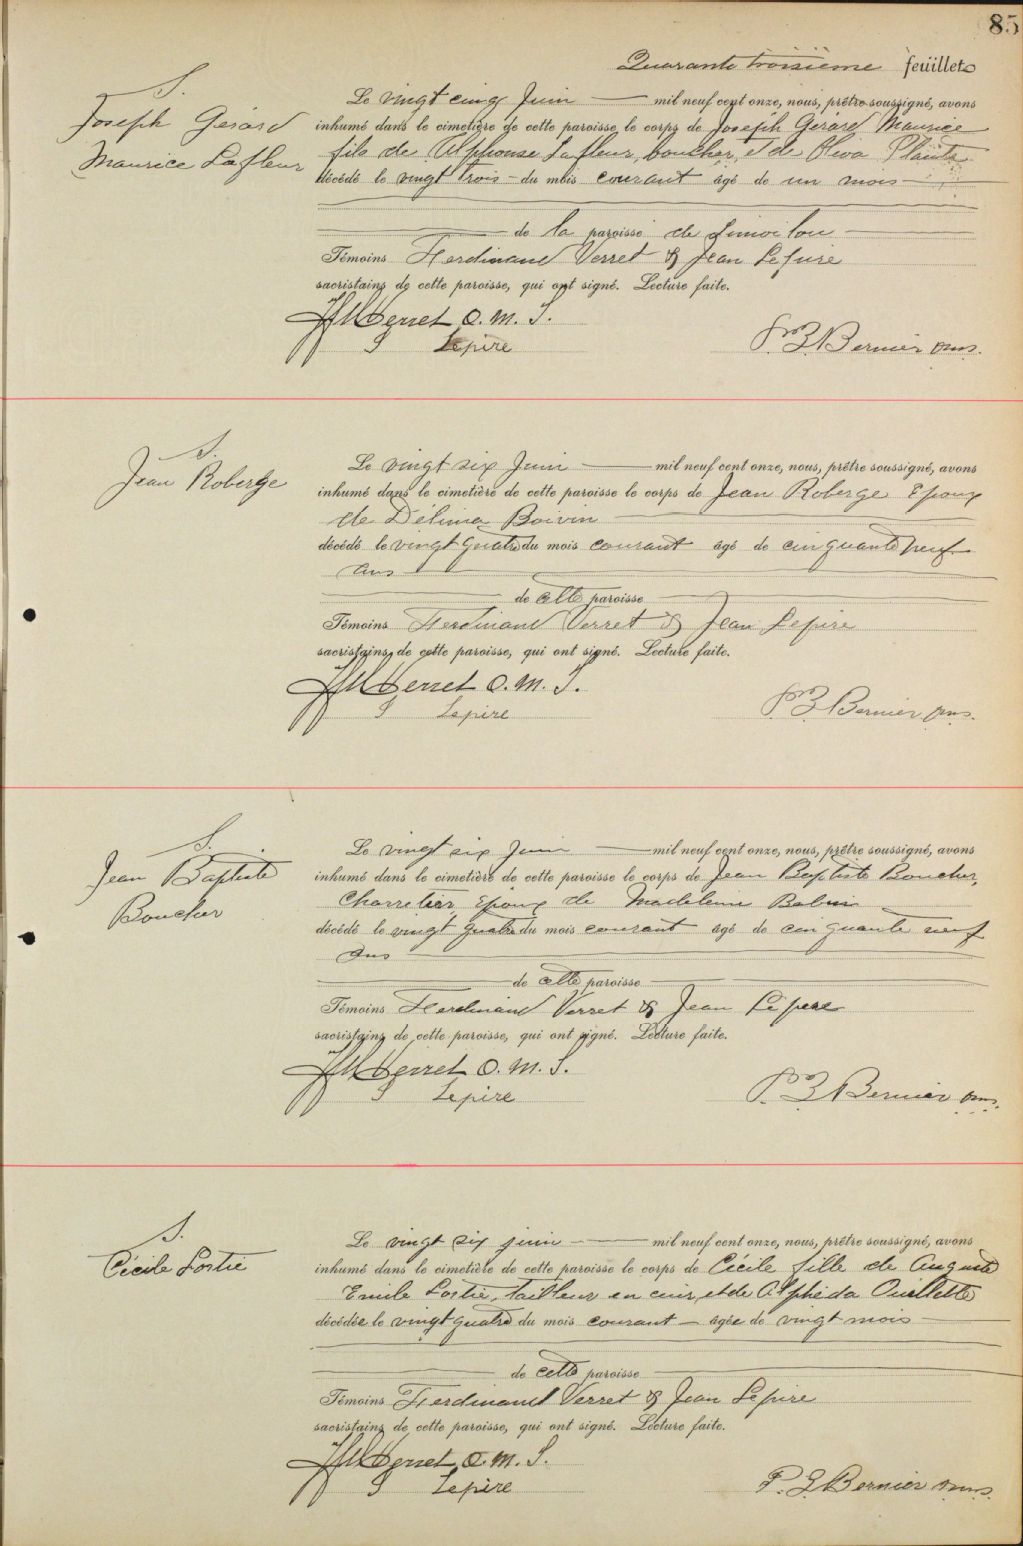 85
Quarante troisième feuillet
S.
Joseph Gérard
Maurice Lafleur
Le vingt cinq Juin — mil neuf cent onze, nous, prêtre soussigné, avons
inhumé dans le cimetière de cette paroisse, le corps de Joseph Gérard Maurice
fils de Alphonse Lafleur, boucher, et de Oliva Plante
décédé le vingt trois - du mois courant âgé de un mois
de la paroisse de Limoilou
Témoins Ferdinand Verret & Jean Lepire
sacristains de cette paroisse, qui ont signé. Lecture faite.
Verret O. M. S.
Lepire
Bernier
S.
Jean Roberge
Le vingt six Juin — mil neuf cent onze, nous, prêtre soussigné, avons
inhumé dans le cimetière de cette paroisse le corps de Jean Roberge Epoux
de Délima Boivin
décédé le vingt quatre du mois courant âgé de cinquante neuf
ans
de cette paroisse
Témoins Ferdinand Verret & Jean Lepire
sacristains de cette paroisse, qui ont signé. Lecture faite.
Verret O. M. S.
Lepire
Bernier
S.
Jean Baptiste
Boucher
Le vingt six Juin — mil neuf cent onze, nous, prêtre soussigné, avons
inhumé dans le cimetière de cette paroisse le corps de Jean Baptiste Boucher,
Charretier, Epoux de Madeleine
décédé le vingt quatre du mois courant âgé de cinquante neuf
ans
de cette paroisse
Témoins Ferdinand Verret & Jean Lepire
sacristains de cette paroisse, qui ont signé. Lecture faite.
Verret O. M. S.
Lepire
Bernier
S.
Cécile Lortie
Le vingt six juin — mil neuf cent onze, nous, prêtre soussigné, avons
inhumé dans le cimetière de cette paroisse le corps de Cécile fille de Auguste
Emile Lortie, tailleur en cuir, et de Alphéda Ouellette
décédée le vingt quatre du mois courant — âgée de vingt mois
de cette paroisse
Témoins Ferdinand Verret & Jean Lepire
sacristains de cette paroisse, qui ont signé. Lecture faite.
Verret O. M. S.
Lepire
Bernier